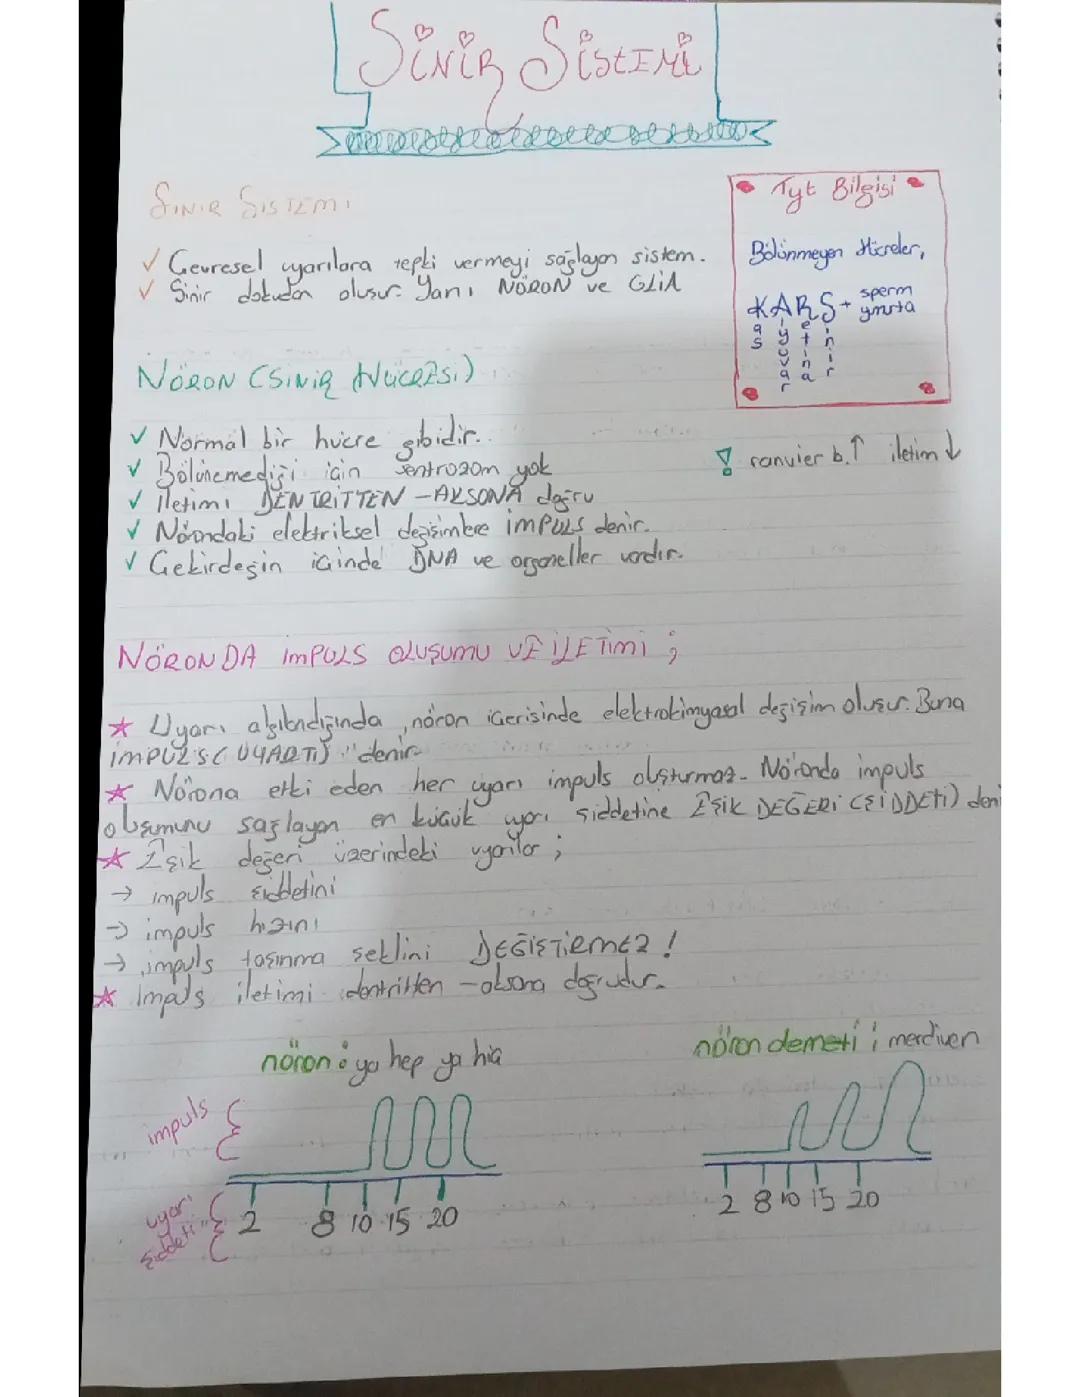 SiNiR SiStEMi
SiNiR SiSTEMi
Tyt Bilgisi
✓ Çevresel uyarılara tepki vermeyi sağlayan sistem.
✓ Sinir dokudan oluşur. Yani NÖRON ve GLiA
Bölünmeyen Hücreler,
KARS + sperm
yumurta
as
lyuvar
etina
inir
NÖRON (SiNiR HÜCRESi)
✓ Normal bir hücre gibidir.
✓ Bölünemediği için sentrozom yok
! ranvier b.↑ iletim↓
✓ iletimi DENTRİTTEN - AKSONA doğru
✓ Nörondaki elektriksel değişimlere imPULS denir.
✓ Çekirdeğin içinde DNA ve organeller vardır.
NÖRONDA imPULS OLUŞUMU VE iLETimi ;
★ Uyarı algılandığında, nöron içerisinde elektrokimyasal değişim oluşur. Buna
imPULS (UYARTI) "denir
★ Nörona etki eden her uyarı impuls oluşturmaz. Nöronda impuls
oluşumunu sağlayan en küçük uyarı şiddetine EŞiK DEĞERi (ŞiDDETi) deni
★ Eşik değeri üzerindeki uyarılar ;
→ impuls şiddetini
→ impuls hızını
→ impuls taşınma şeklini DEĞiŞTiRMEZ !
★ impuls iletimi dentritten - aksona doğrudur.
nöron : ya hep ya hiç
nöron demeti ; merdiven
impuls
uyarı şiddeti
2 8 10 15 20
2 8 10 15 20